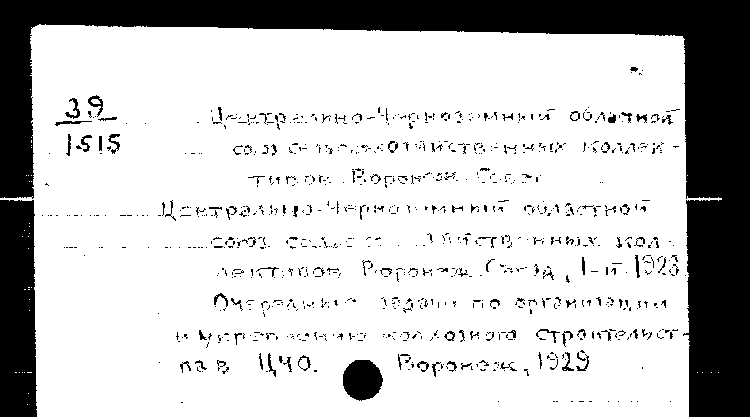 39
1515
Центрально-Черноземный областной
союз сельскохозяйственных коллек-
тивов. Воронеж. Съезд
Центрально-Черноземный областной
союз сельскохозяйственных кол-
лективов Воронеж. Съезд, 1-й. 1928
Очередные задачи по организации
и укреплению колхозного строительст-
ва в ЦЧО. Воронеж, 1929